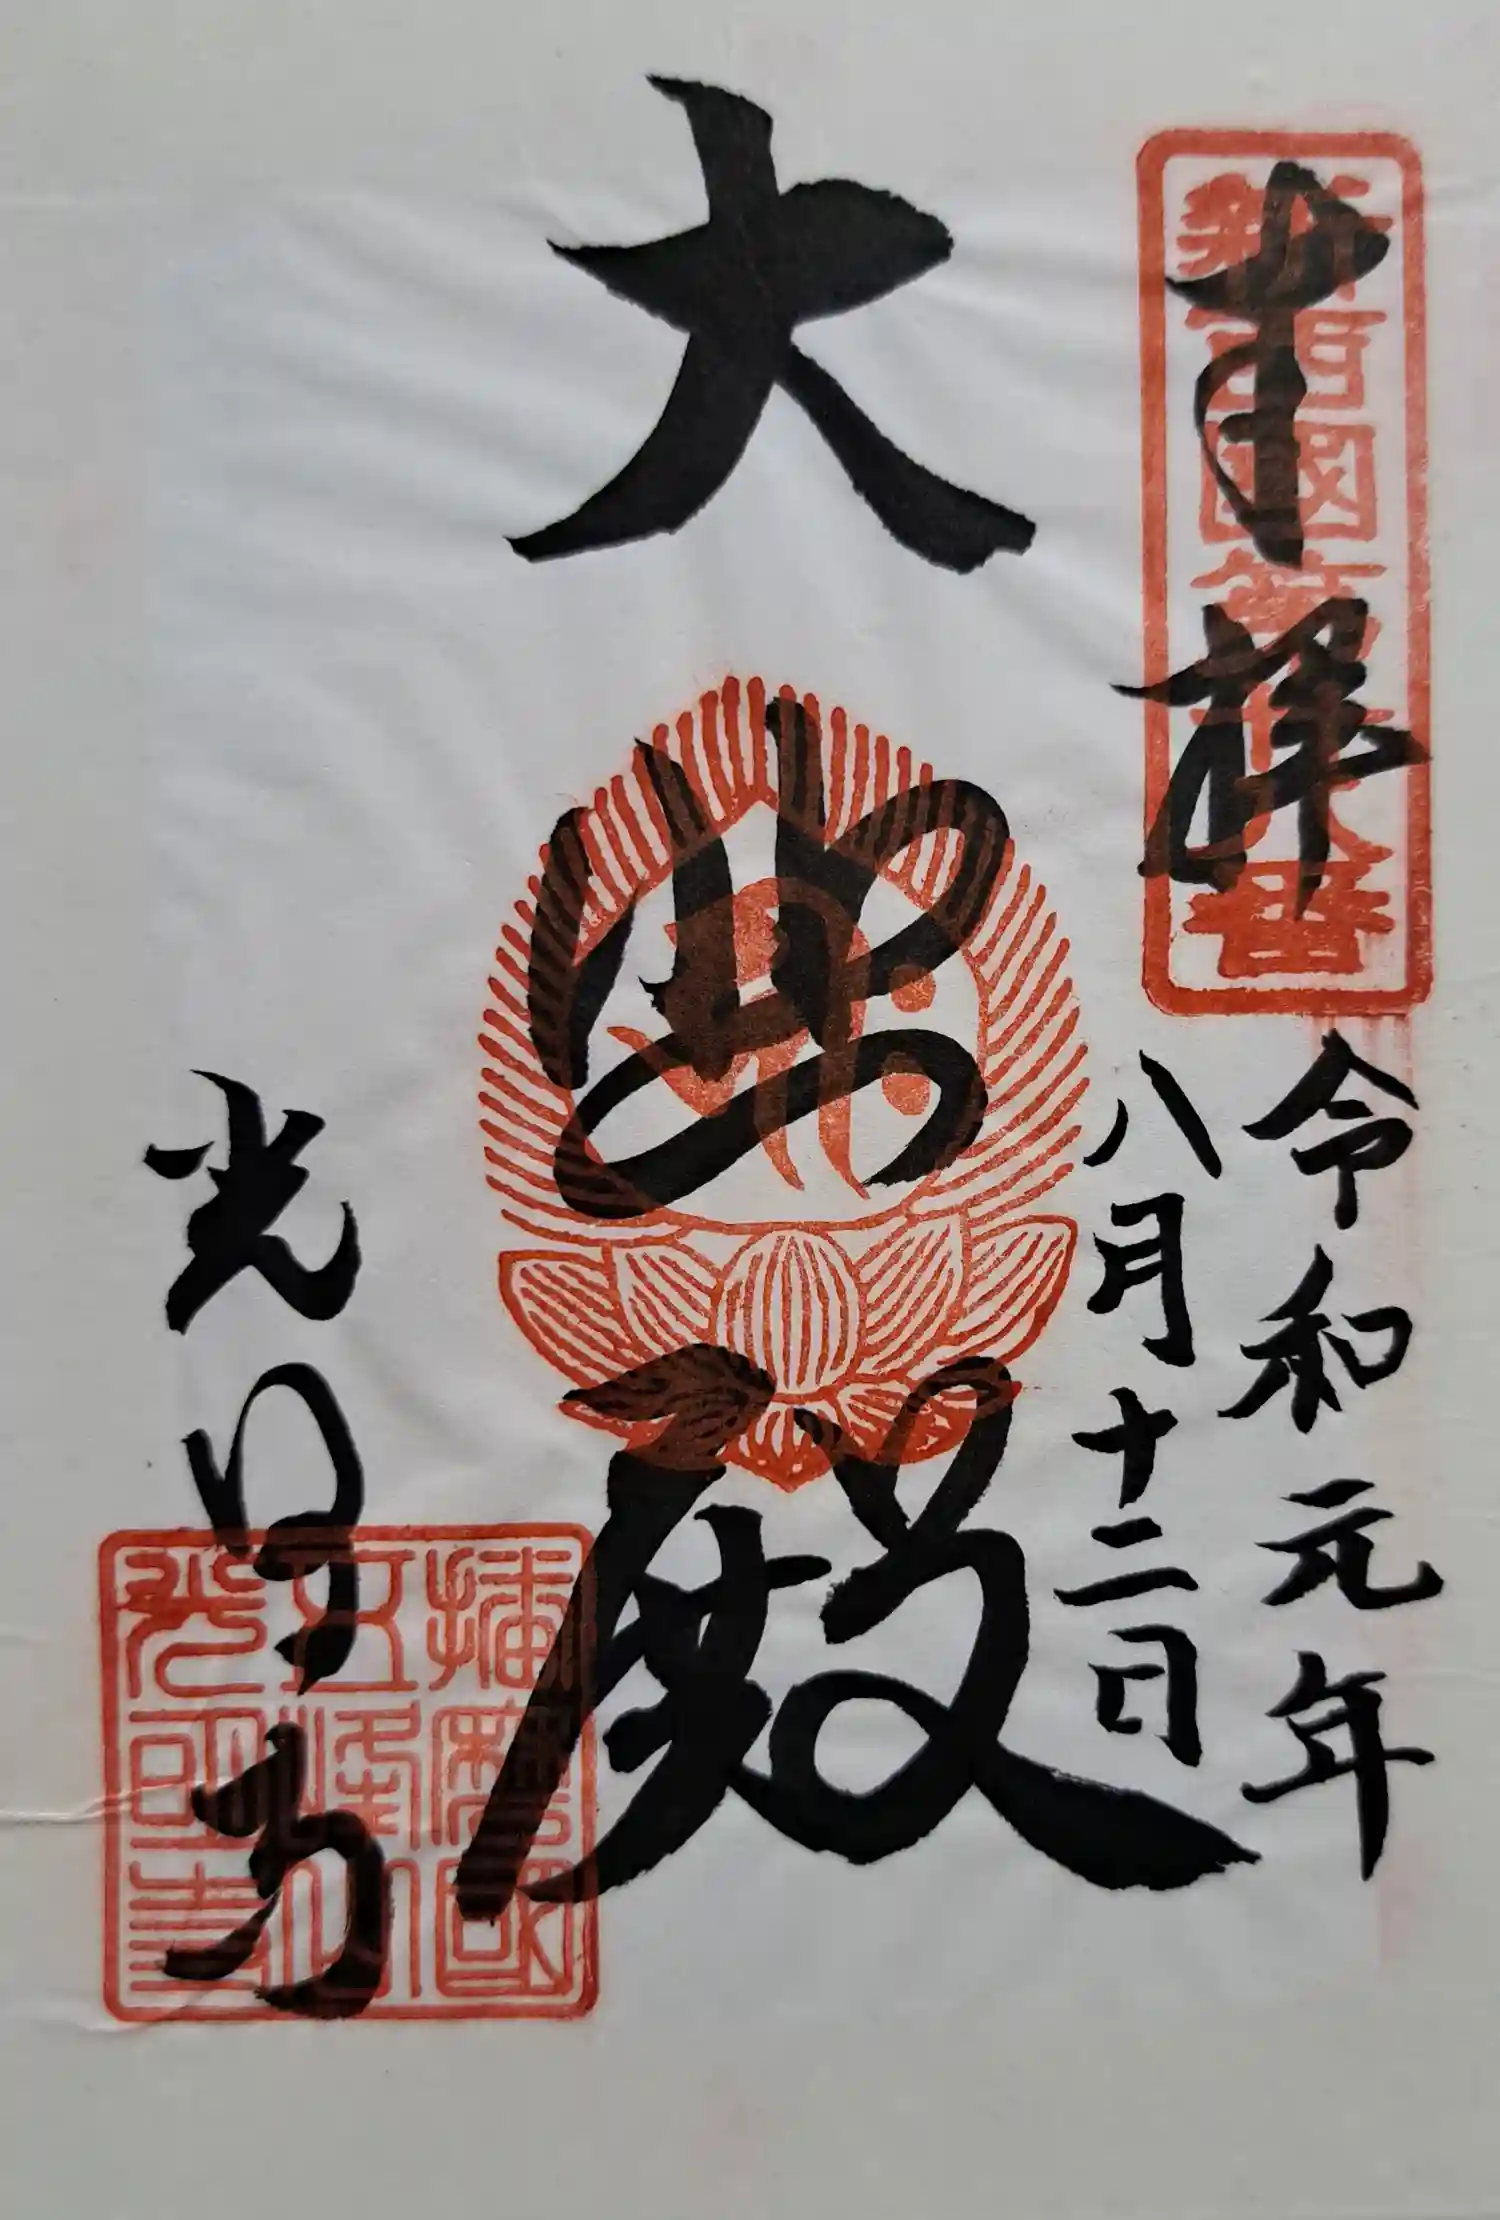 奉拝
新西國第廿八番
令和元年
八月十二日
大悲殿
光明寺
播磨國
五峰山
光明寺